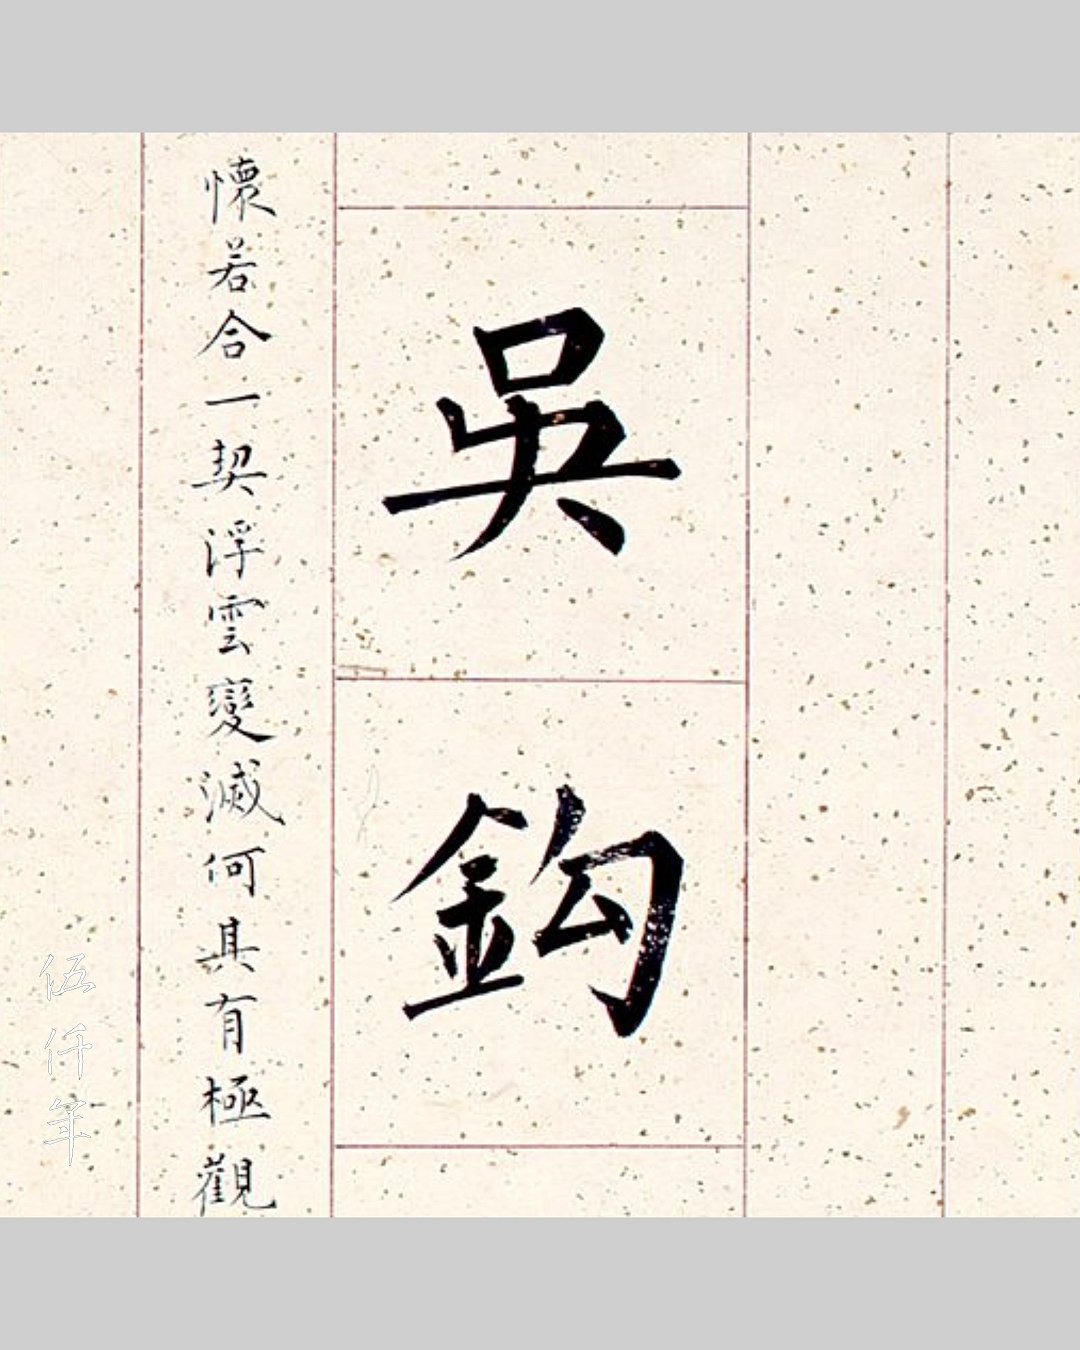 吳鈎
懷若合一契浮雲變滅何具有極觀
伍仟年